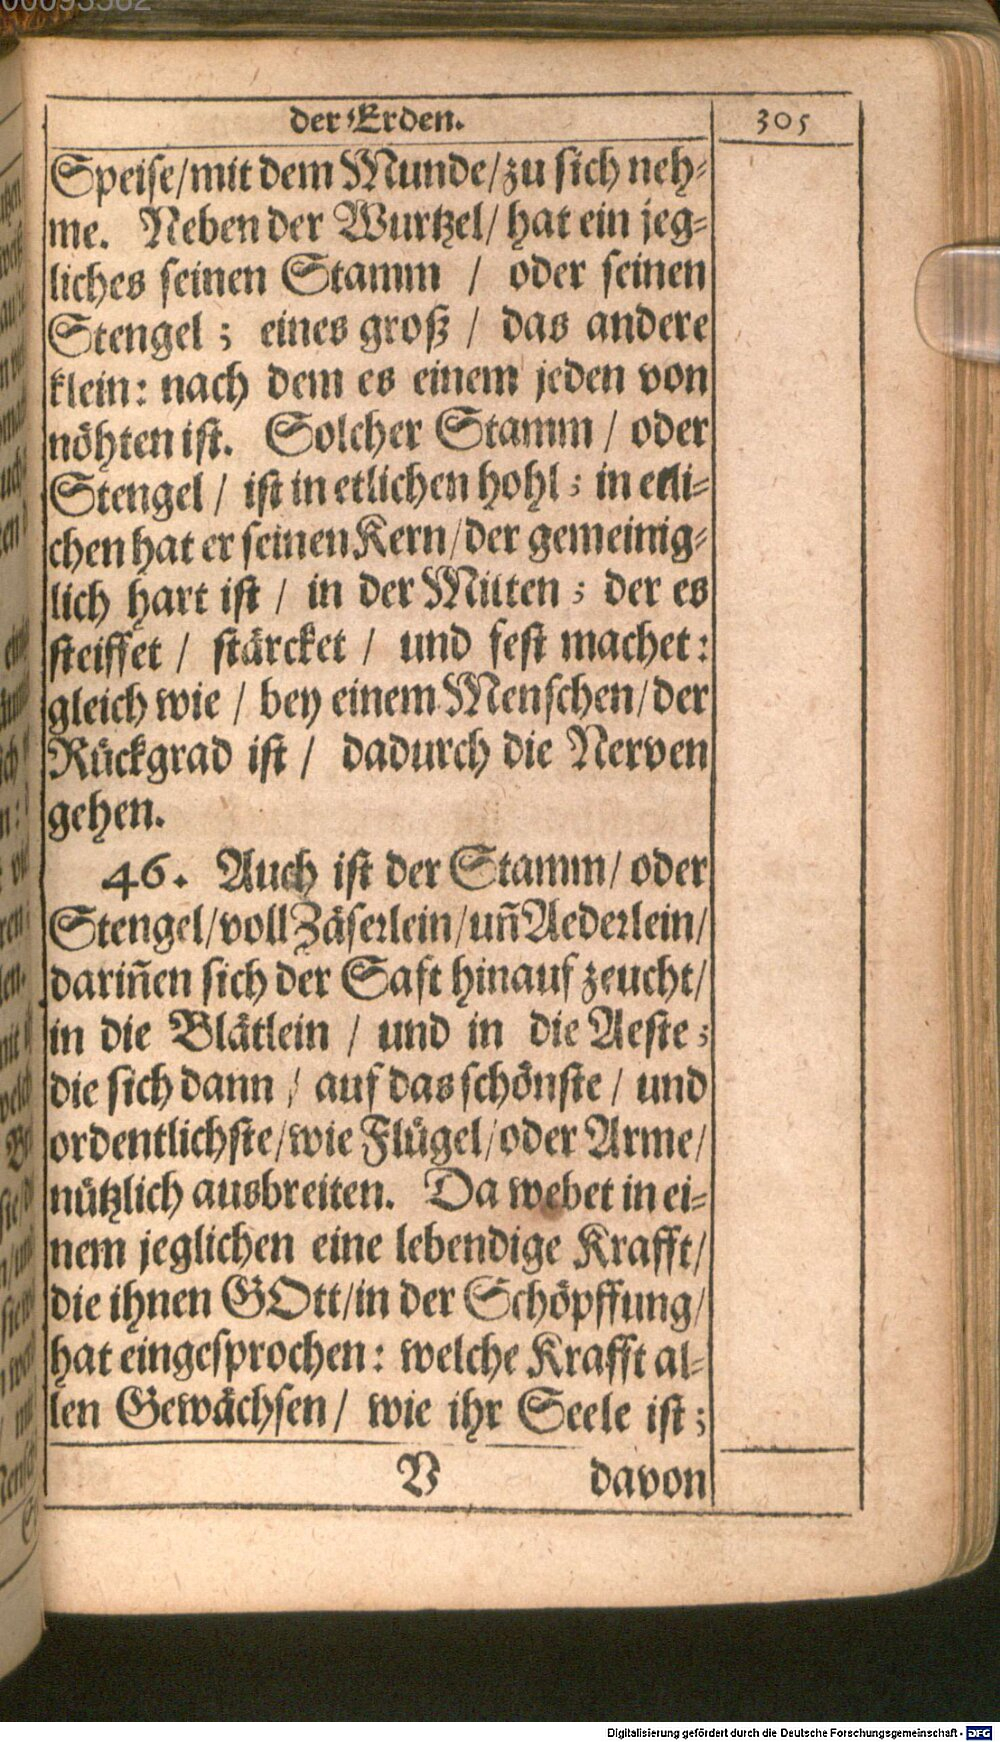 der Erden.
305
Speise/mit dem Munde/zu sich neh-
me. Neben der Wurtzel/ hat ein jeg-
liches seinen Stamm / oder seinen
Stengel ; eines groß / das andere
klein: nach dem es einem jeden von
nöhten ist. Solcher Stamm / oder
Stengel / ist in etlichen hohl ; in etli-
chen hat er seinen Kern/der gemeinig-
lich hart ist / in der Mitten ; der es
steiffet / stärcket / und fest machet:
gleich wie / bey einem Menschen/der
Rückgrad ist / dadurch die Nerven
gehen.
46. Auch ist der Stamm/ oder
Stengel/voll Zäserlein/uñ Aederlein/
dariñen sich der Saft hinauf zeucht/
in die Blätlein / und in die Aeste ;
die sich dann / auf das schönste / und
ordentlichste/wie Flügel/oder Arme/
nützlich ausbreiten. Da webet in ei-
nem jeglichen eine lebendige Krafft/
die ihnen GOtt/in der Schöpffung/
hat eingesprochen: welche Krafft al-
len Gewächsen / wie ihr Seele ist ;
V davon
Digitalisierung gefördert durch die Deutsche Forschungsgemeinschaft - DFG